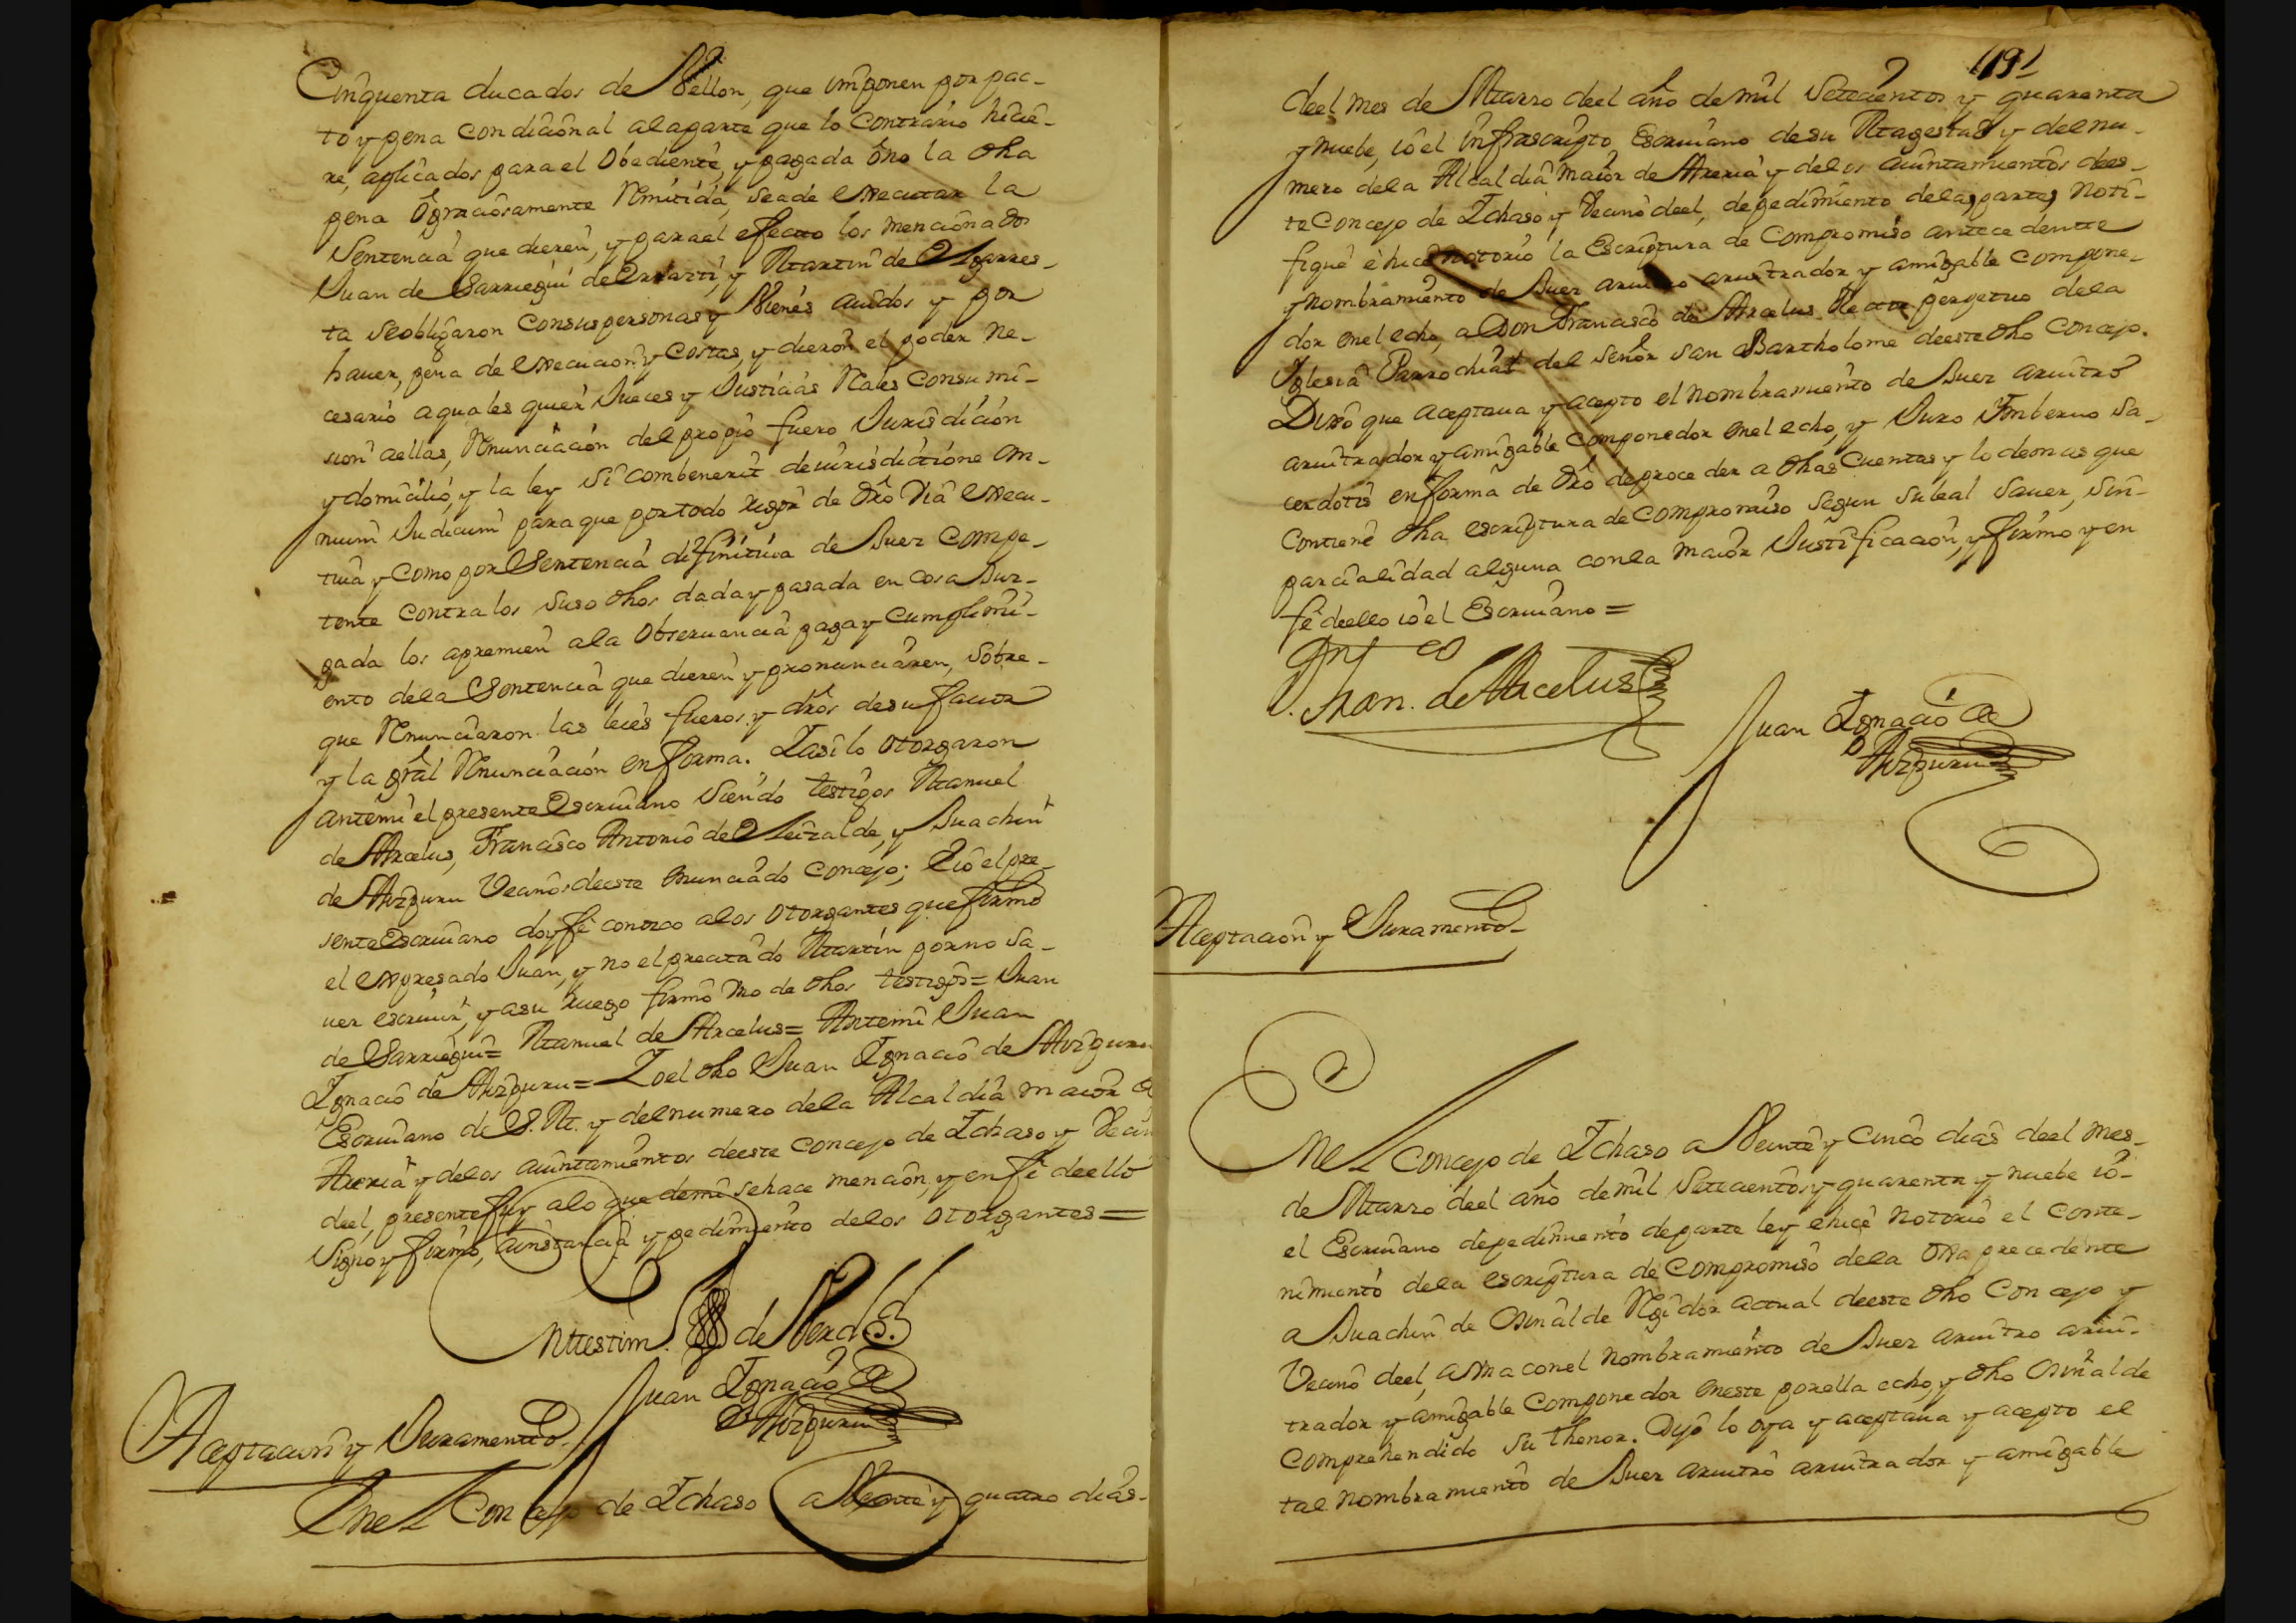 Cinquenta ducados de Vellon, que imponen por pac-
to y pena condicional a la parte que lo contrario hicie-
re, aplicados para el obediente, y pagada ô no la dha
pena ô graciosamente Rmitida, sea de executar la
Sentencia que dieren, y para el efecto los mencionados
Juan de Sarriegui de Errarti, y Martin de Elgarres-
ta se obligaron con sus personas y Vienes auidos y por
hauer, pena de execucion y costas, y dieron el poder ne-
cesario a quales quier Jueces y Justicias Rales con sumi-
sion aellas, Rnunciacion del propio fuero Jurisdicion
y domicilio, y la ley si combenerit de iurisdictione om-
nium Judicum para que por todo rigor de dro via execu-
tiua y como por Sentencia difinitiua de Juez compe-
tente contra los suso dhos dada y pasada en cosa Juz-
gada los apremien a la obseruancia paga y cumplimi-
ento dela Sentencia que dieren y pronunciaren, sobre-
que Rnunciaron las leies fueros y dros de su fauor
y la gral Rnunciacion en forma. I asi lo otorgaron
ante mi el presente Escriuano siendo testigos Manuel
de Arcelus, Francisco Antonio de Leizalde, y Juachin
de Aizpuru Vecinos deeste enunciado concejo; E io el pre-
sente Escriuano doy fe conozco a los otorgantes que firmo
el expresado Juan, y no el precitado Martin por no sa-
uer escriuir, y a su ruego firmo vno de dhos testigos = Juan
de Sarriegui = Manuel de Arcelus = Ante mi Juan
Ignacio de Aizpuru = Io el dho Juan Ignacio de Aizpuru
Escriuano de S. M. y del numero dela Alcaldia maior de
Areria y delos aiuntamientos deeste concejo de Ichaso y Vecino
deel, presente fuy a lo que de mi se hace mencion, y en fe deello
Signo y firmo, a instancia y pedimiento delos otorgantes =
En testim.º de Verdad
Juan Ignacio de
Aizpuru
Aceptacion y Juramento
En el Concejo de Ichaso a Veinte y quatro dias-
191
deel mes de Marzo deel año de mil Setecientos y quarenta
y nuebe, io el infrascripto Escriuano de su Magestad y del nu-
mero dela Alcaldia maior de Areria y delos aiuntamientos dees-
te Concejo de Ichaso y Vecino deel, de pedimiento delas partes noti-
fique è hice notorio la Escriptura de compromiso antecedente
y nombramiento de Juez aruitro aruitrador y amigable compone-
dor en el echo, a Don Francisco de Arcelus Rector perpetuo dela
Iglesia Parrochial del señor San Bartholome deeste dho concejo.
Dixo que aceptaua y acepto el nombramiento de Juez aruitro
aruitrador y amigable componedor en el echo, y Juro In beruo Sa-
cerdotis en forma de dro de proceder a dhas Cuentas y lo demas que
contiene dha escriptura de compromiso segun su leal sauer, sin
parcialidad alguna con la maior Justificacion, y firmo y en
fe deello io el Escriuano =
Fran.co de Arcelus
Juan Ignacio de
Aizpuru
Aceptacion y Juramento
En el concejo de Ichaso a Veinte y cinco dias deel mes-
de Marzo deel año de mil Setecientos y quarenta y nuebe io-
el Escriuano de pedimiento de parte ley e hice notorio el conte-
nimiento dela escriptura de compromiso dela oxa precedente
a Juachin de Osinalde Regidor actual deeste dho Concejo y
Vecino deel, a vna con el nombramiento de Juez aruitro arui-
trador y amigable componedor en este por ella echo, y dho Osinalde
comprehendido su thenor. Dijo lo oya y aceptaua y acepto el
tal nombramiento de Juez aruitro aruitrador y amigable